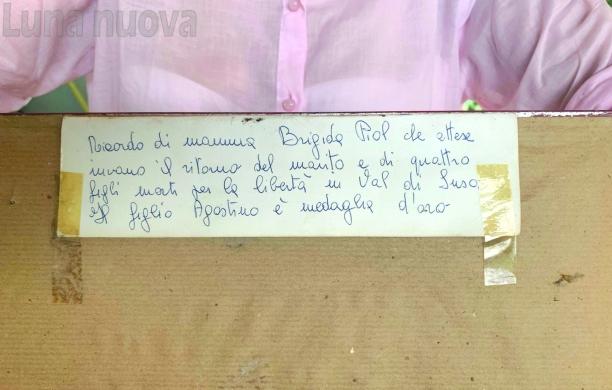 Luna nuova
Ricordo di mamma Brigida Piol che attese
invano il ritorno del marito e di quattro
figli morti per la libertà in Val di Susa
Il figlio Agostino è medaglia d'oro